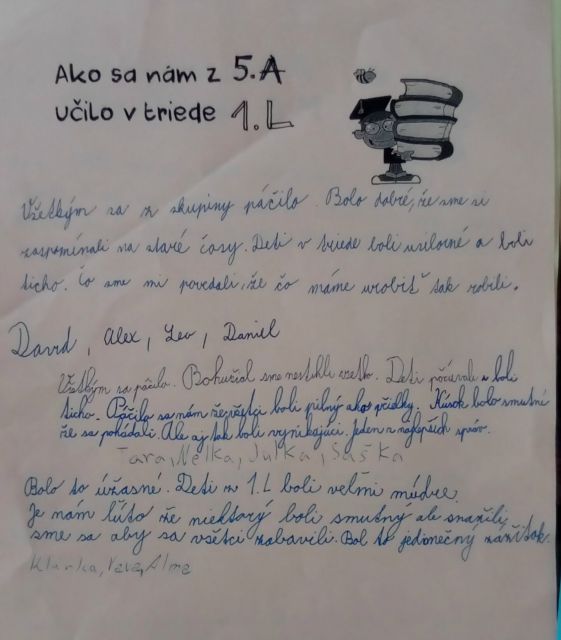 Ako sa nám z 5.A
učilo v triede 1.L
Všetkým sa z skupiny páčilo. Bolo dobré, že sme si
zaspomínali na staré časy. Deti v triede boli usilovné a boli
ticho. Čo sme mi povedali, že čo máme urobiť tak robili.
David, Alex, Leo, Daniel
Všetkým sa páčilo. Bohužial sme nestihli všetko. Deti počúvali a boli
ticho. Páčilo sa nám že všetci boli pilný ako včielky. Kúsok bolo smutné
že sa pohádali. Ale aj tak boli vynikajúci. Jeden z najlepších
Tara, Nelka, Julka, Saška
Bolo to úžasné. Deti z 1.L boli veľmi múdre.
Je nám lúto že niektorý boli smutný ale snažili
sme sa aby sa všetci zabavili. Bol to jedinečný zážitok.
Klárka, Alma